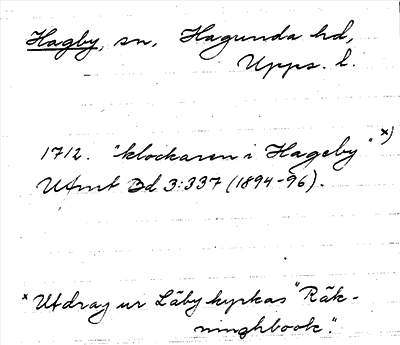 Hagby, sn, Hagunda hd,
Upps. l.
1712. "klockaren i Hageby" x)
UFmT Bd 3:337 (1894-96).
x Utdrag ur Läby kyrkas "Räk-
ninghbook".